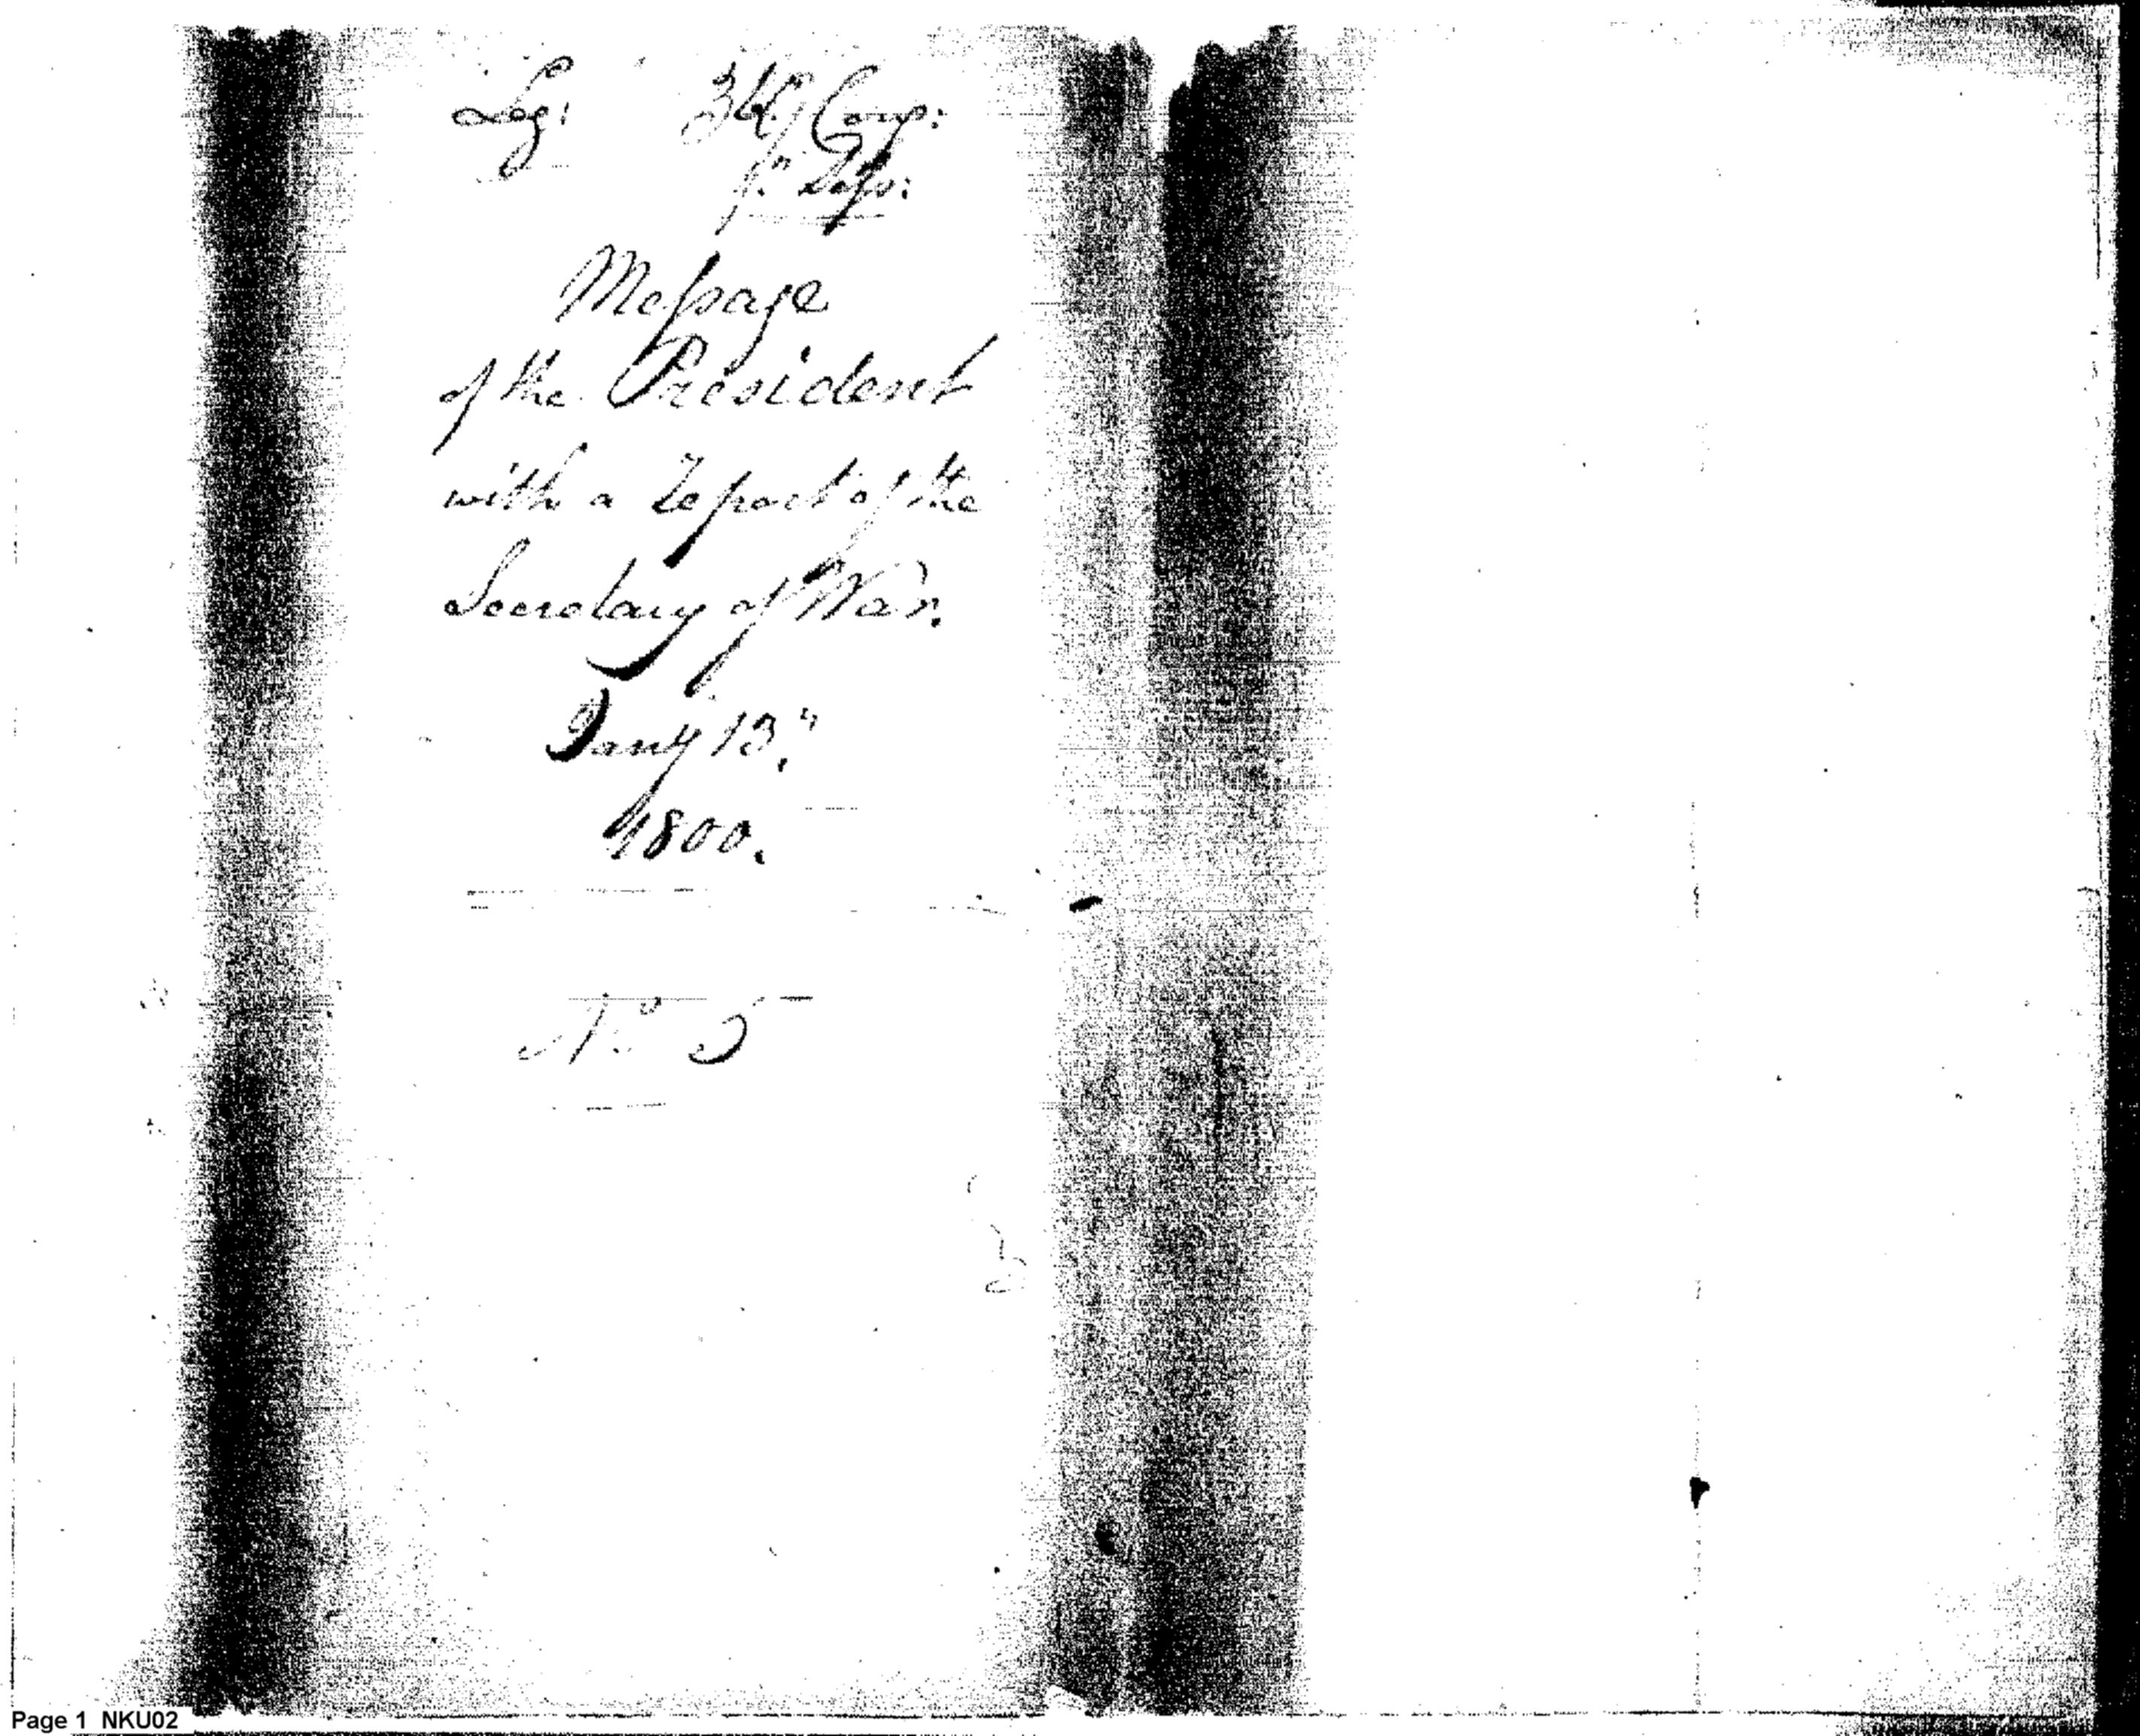 Leg: Cong:
1st Sess:
Message
of the President
with a Report of the
Secretary of War.
Jany 13th
1800.
No 5
Page 1 NKU02